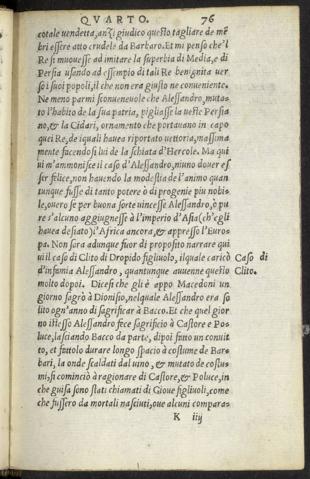 QVARTO. 76
cotale vendetta, anzi giudico questo tagliare de mẽ
bri essere atto crudele da Barbaro. Et mi penso che'l
Re si muouesse ad imitare la superbia di Media, e di
Persia usando ad essempio di tali Re benignita uer
so i suoi popoli, il che non era giusto ne conueniente.
Ne meno parmi sconueneuole che Alessandro, muta-
to l'habito de la sua patria, pigliasse la ueste Persia
na, & la Cidari, ornamento che portauano in capo
quei Re, de iquali hauea riportato uettoria, massima
mente facendosi lui de la schiata d'Hercole. Ma qui
ui m'ammonisce il caso d'Alessandro, niuno douer es
ser felice, non hauendo la modestia de l'animo quan
tunque fusse di tanto potere ò di progenie piu nobi-
le, ouero se per buona sorte uincesse Alessandro, ò pu
re s'alcuno aggiugnesse à l'imperio d'Asia (ch'egli
hauea desiato) l'Africa ancora, & appresso l'Euro-
pa. Non sara adunque fuor di proposito narrare qui
ui il caso di Clito di Dropido figliuolo, ilquale caricò
Caso di
d'infamia Alessandro, quantunque auuenne questo
Clito.
molto dopoi. Dicesi che gli è appo Macedoni un
giorno sagrò à Dionisio, nelquale Alessandro era so
lito ogn'anno di sagrificar à Bacco. Et che quel gior
no istesso Alessandro fece sagrificio à Castore e Po-
luce, lasciando Bacco da parte, dipoi fatto un conuit
to, et fattolo durare longo spacio à costume de Bar-
bari, la onde scaldati dal uino, & mutato de costu-
mi, si cominciò à ragionare di Castore, & Poluce, in
che guisa sono stati chiamati di Gioue figliuoli, come
che fussero da mortali nasciuti, oue alcuni compara-
K iiij